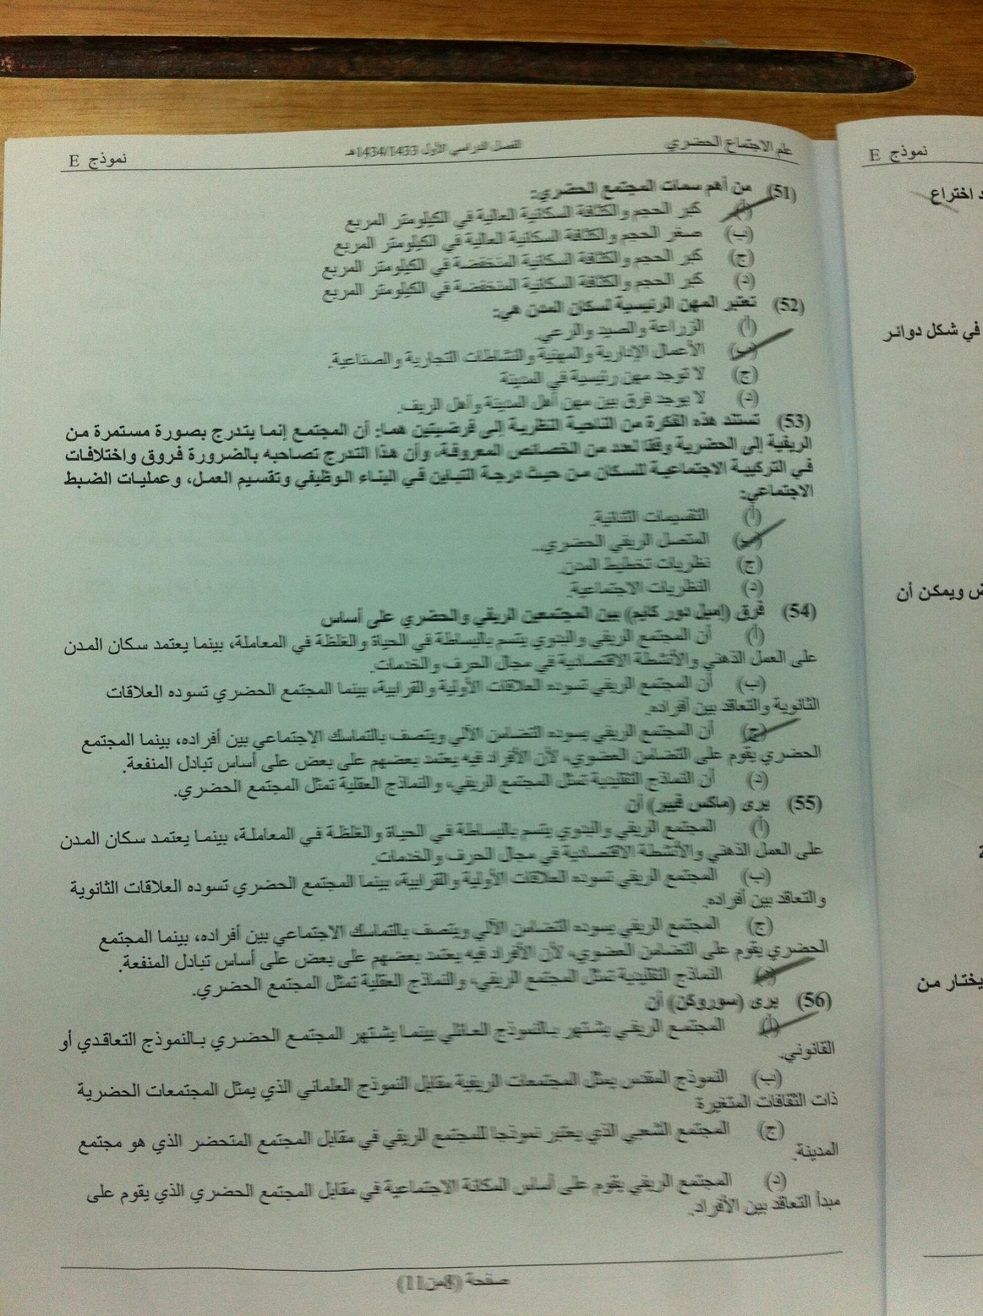 علم الاجتماع الحضري
الفصل الدراسي الأول 1434/1433هـ
نموذج E
51) من أهم سمات المجتمع الحضري:
(أ) كبر الحجم والكثافة السكانية العالية في الكيلومتر المربع
(ب) صغر الحجم والكثافة السكانية العالية في الكيلومتر المربع
(ج) كبر الحجم والكثافة السكانية المنخفضة في الكيلومتر المربع
(د) كبر الحجم والكثافة السكانية المنخفضة في الكيلومتر المربع
52) تعتبر المهن الرئيسية لسكان المدن هي:
(أ) الزراعة والصيد والرعي.
(ب) الأعمال الإدارية والمهنية والنشاطات التجارية والصناعية.
(ج) لا توجد مهن رئيسية في المدينة
(د) لا يوجد فرق بين مهن أهل المدينة وأهل الريف.
53) تستند هذه الفكرة من الناحية النظرية إلى فرضيتين هما: أن المجتمع إنما يتدرج بصورة مستمرة من
الريفية إلى الحضرية وفقا لعدد من الخصائص المعروفة، وأن هذا التدرج تصاحبه بالضرورة فروق واختلافات
في التركيبة الاجتماعية للسكان من حيث درجة التباين في البناء الوظيفي وتقسيم العمل، وعمليات الضبط
الاجتماعي:
(أ) التقسيمات الثنائية.
(ب) المتصل الريفي الحضري..
(ج) نظريات تخطيط المدن.
(د) النظريات الاجتماعية.
54) فرق (إميل دور كايم) بين المجتمعين الريفي والحضري على أساس
(أ) أن المجتمع الريفي والبدوي يتسم بالبساطة في الحياة والغلظة في المعاملة، بينما يعتمد سكان المدن
على العمل الذهني والأنشطة الاقتصادية في مجال الحرف والخدمات.
(ب) أن المجتمع الريفي تسوده العلاقات الأولية والقرابية، بينما المجتمع الحضري تسوده العلاقات
الثانوية والتعاقد بين أفراده.
(ج) أن المجتمع الريفي يسوده التضامن الآلي ويتصف بالتماسك الاجتماعي بين أفراده، بينما المجتمع
الحضري يقوم على التضامن العضوي، لأن الأفراد فيه يعتمد بعضهم على بعض على أساس تبادل المنفعة.
(د) أن النماذج التقليدية تمثل المجتمع الريفي، والنماذج العقلية تمثل المجتمع الحضري.
55) يرى (ماكس فيبر) أن
(أ) المجتمع الريفي والبدوي يتسم بالبساطة في الحياة والغلظة في المعاملة، بينما يعتمد سكان المدن
على العمل الذهني والأنشطة الاقتصادية في مجال الحرف والخدمات.
(ب) المجتمع الريفي تسوده العلاقات الأولية والقرابية، بينما المجتمع الحضري تسوده العلاقات الثانوية
والتعاقد بين أفراده.
(ج) المجتمع الريفي يسوده التضامن الآلي ويتصف بالتماسك الاجتماعي بين أفراده، بينما المجتمع
الحضري يقوم على التضامن العضوي، لأن الأفراد فيه يعتمد بعضهم على بعض على أساس تبادل المنفعة.
(د) النماذج التقليدية تمثل المجتمع الريفي، والنماذج العقلية تمثل المجتمع الحضري.
56) يرى (سوروكن) أن
(أ) المجتمع الريفي يشتهر بالنموذج العائلي بينما يشتهر المجتمع الحضري بالنموذج التعاقدي أو
القانوني.
(ب) النموذج المقدس يمثل المجتمعات الريفية مقابل النموذج العلماني الذي يمثل المجتمعات الحضرية
ذات الثقافات المتغيرة
(ج) المجتمع الشعبي الذي يعتبر نموذجا للمجتمع الريفي في مقابل المجتمع المتحضر الذي هو مجتمع
المدينة.
(د) المجتمع الريفي يقوم على أساس المكانة الاجتماعية في مقابل المجتمع الحضري الذي يقوم على
مبدأ التعاقد بين الأفراد.
صفحة (8من11)
نموذج E
اختراع
في شكل دوائر
ويمكن أن
يختار من